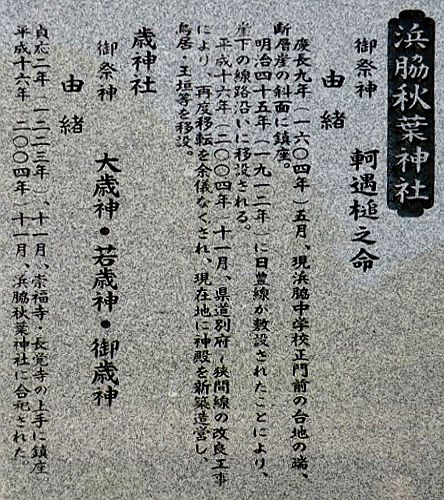 浜脇秋葉神社
御祭神　軻遇槌之命
由緒
慶長九年（一六〇四年）五月、現浜脇中学校正門前の台地の端、
断層崖の斜面に鎮座。
明治四十五年（一九一二年）に日豊線が敷設されたことにより、
崖下の線路沿いに移設される。
平成十六年（二〇〇四年）十一月、県道別府〜狭間線の改良工事
により、再度移転を余儀なくされ、現在地に神殿を新築造営し、
鳥居・玉垣等を移設。
歳神社
御祭神　大歳神・若歳神・御歳神
由緒
貞応二年（一二二三年）、十一月、崇福寺・長覚寺の上手に鎮座
平成十六年（二〇〇四年）十一月、浜脇秋葉神社に合祀された。